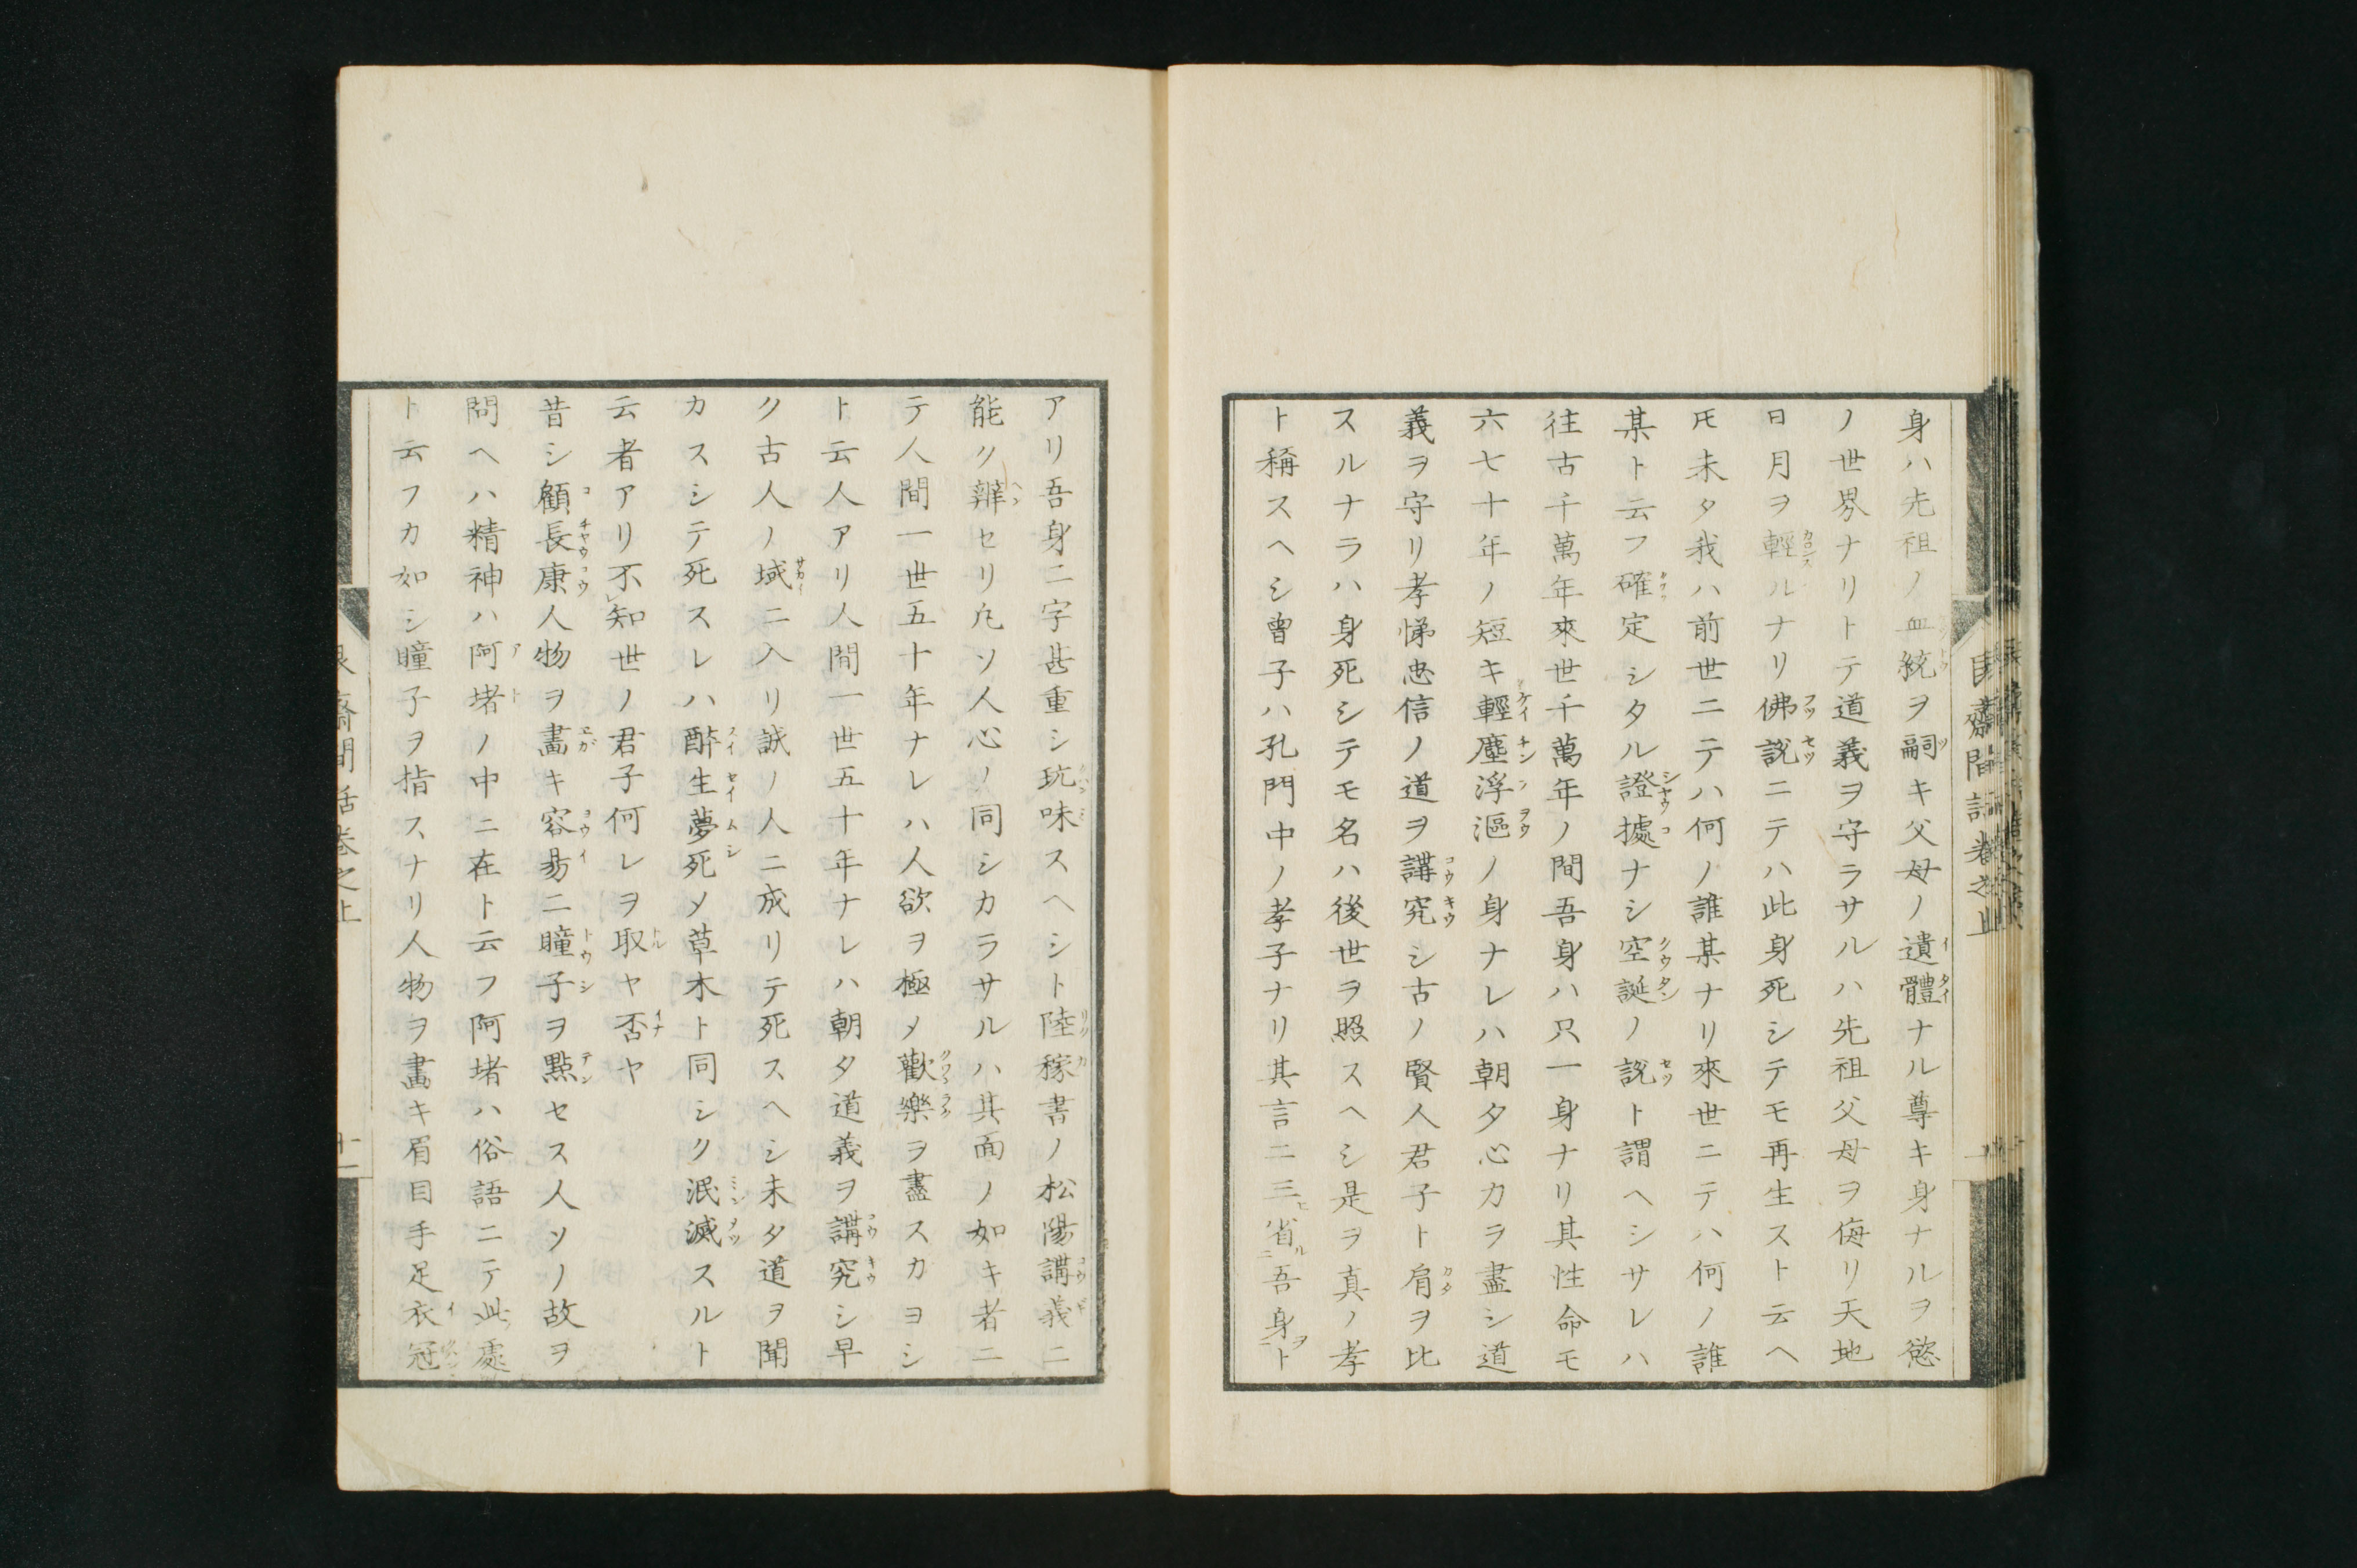 身ハ先祖ノ血統ヲ嗣キ父母ノ遺體ナル尊キ身ナルヲ慾
ノ世界ナリトテ道義ヲ守ラサルハ先祖父母ヲ侮リ天地
日月ヲ輕ルナリ佛説ニテハ此身死シテモ再生スト云ヘ
𪜈未タ我ハ前世ニテハ何ノ誰某ナリ來世ニテハ何ノ誰
某ト云フ確定シタル證據ナシ空誕ノ説ト謂ヘシサレハ
往古千萬年來世千萬年ノ間吾身ハ只一身ナリ其性命モ
六七十年ノ短キ輕塵浮漚ノ身ナレハ朝夕心カラ盡シ道
義ヲ守リ孝悌忠信ノ道ヲ講究シ古ノ賢人君子ト肩ヲ比
スルナラハ身死シテモ名ハ後世ヲ照スヘシ是ヲ真ノ孝
ト稱スヘシ曾子ハ孔門中ノ孝子ナリ其言ニ三省吾身ト
アリ吾身二字甚重シ玩味スヘシト陸稼書ノ松陽講義ニ
能ク辨セリ凡ソ人心ノ同シカラサルハ其面ノ如キ者ニ
テ人間一世五十年ナレハ人欲ヲ極メ歡樂ヲ盡スカヨシ
ト云人アリ人間一世五十年ナレハ朝夕道義ヲ講究シ早
ク古人ノ域ニ入リ誠ノ人ニ成リテ死スヘシ未タ道ヲ聞
カスシテ死スレハ酔生夢死メ草木ト同シク泯滅スルト
云者アリ不知世ノ君子何レヲ取ヤ否ヤ
昔シ顧長康人物ヲ畵キ容易ニ瞳子ヲ點セス人ソノ故ヲ
問ヘハ精神ハ阿堵ノ中ニ在ト云フ阿堵ハ俗語ニテ此處
ト云フカ如シ瞳子ヲ指スナリ人物ヲ畵キ眉目手足衣冠
齋間話卷之上
十一